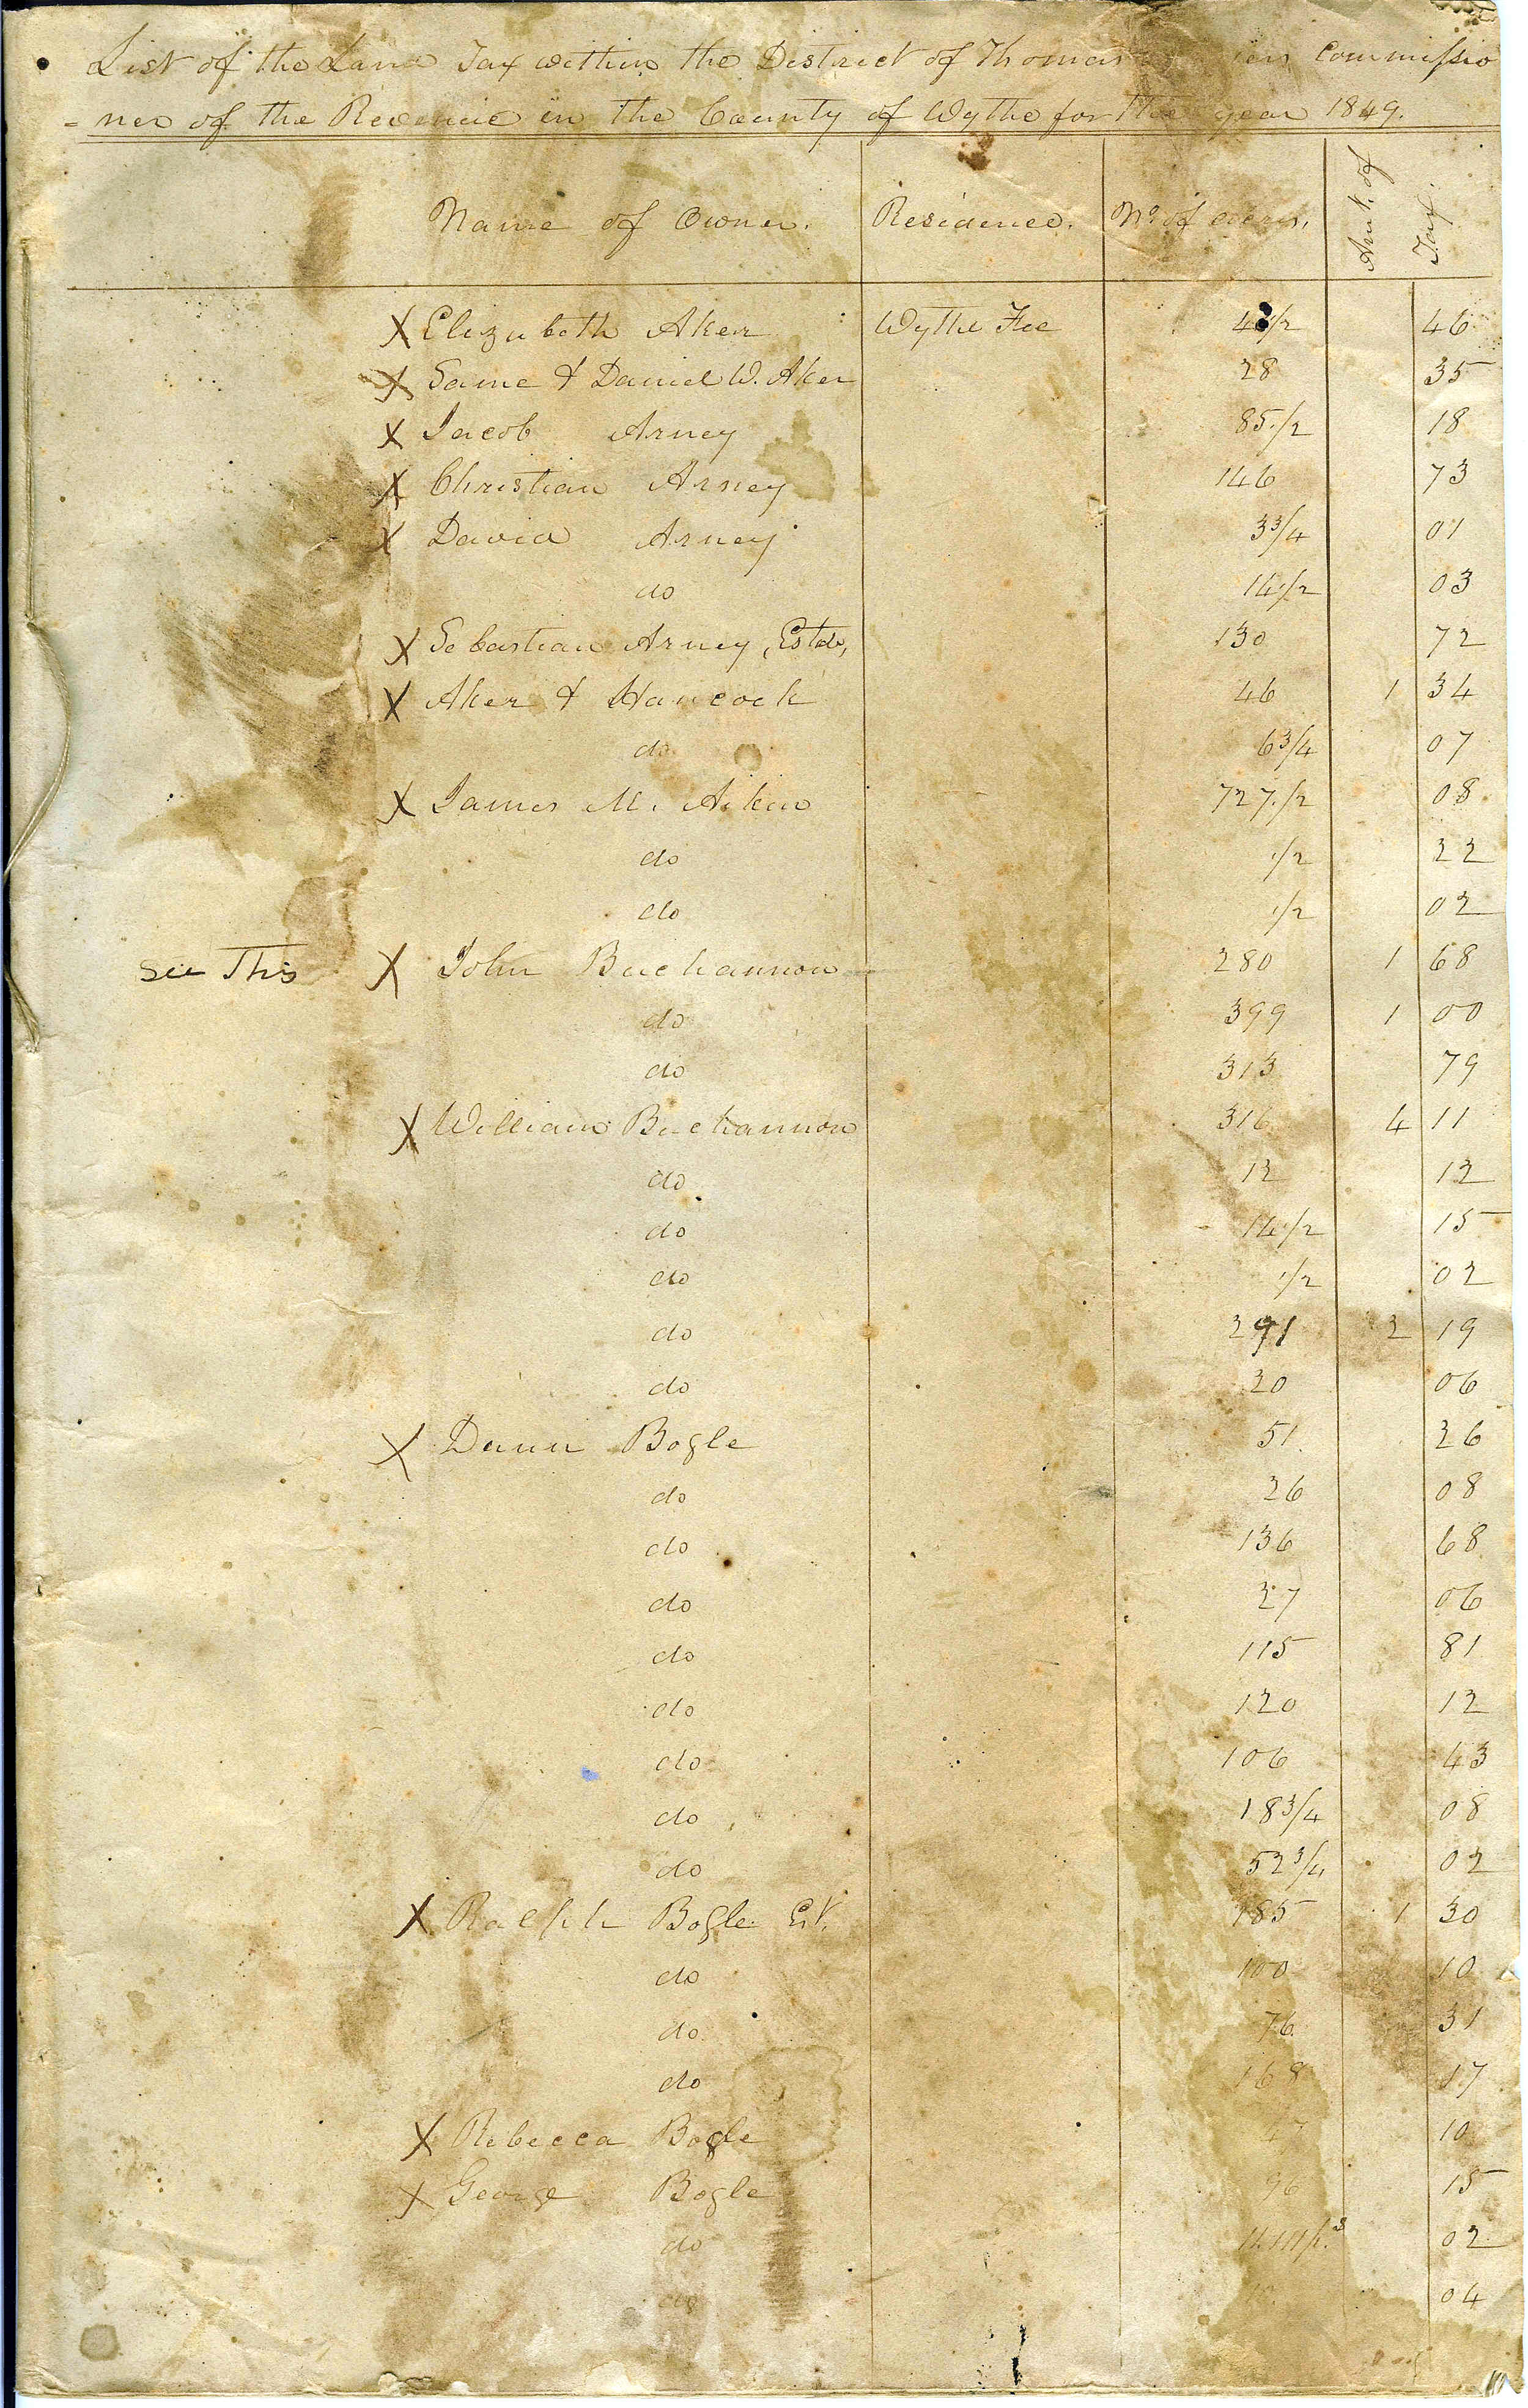 List of the Land Tax within the District of Thomas Commissio
-ner of the Revenue in the County of Wythe for the year 1849.
Name of Owner. Residence. No. of acres. Amt. of Tax.
X Elizabeth Aker Wythe Fee 46
X Same & Daniel W. Aker 28 35
X Jacob Arney 85 1/2 18
X Christian Arney 146 73
X David Arney 3 3/4 01
do 14 1/2 03
X Sebastian Arney, Estd, 130 72
X Aker & Hancock 46 1 34
do 6 3/4 07
X James M. Aiken 727 1/2 08
do 1/2 22
do 1/2 02
See This X John Buchannon 280 1 68
do 399 1 00
do 313 79
X William Buchannon 316 4 11
do 12 12
do 14 1/2 15
do 1/2 02
do 291 2 19
do 20 06
X Dunn Bogle 51 26
do 26 08
do 136 68
do 27 06
do 115 81
do 120 12
do 106 43
do 18 3/4 08
do 52 3/4 02
X Ralph Bogle Est. 185 1 30
do 100 10
do 76 31
do 168 17
X Rebecca Bogle 10
X George Bogle 96 15
do 02
do 04